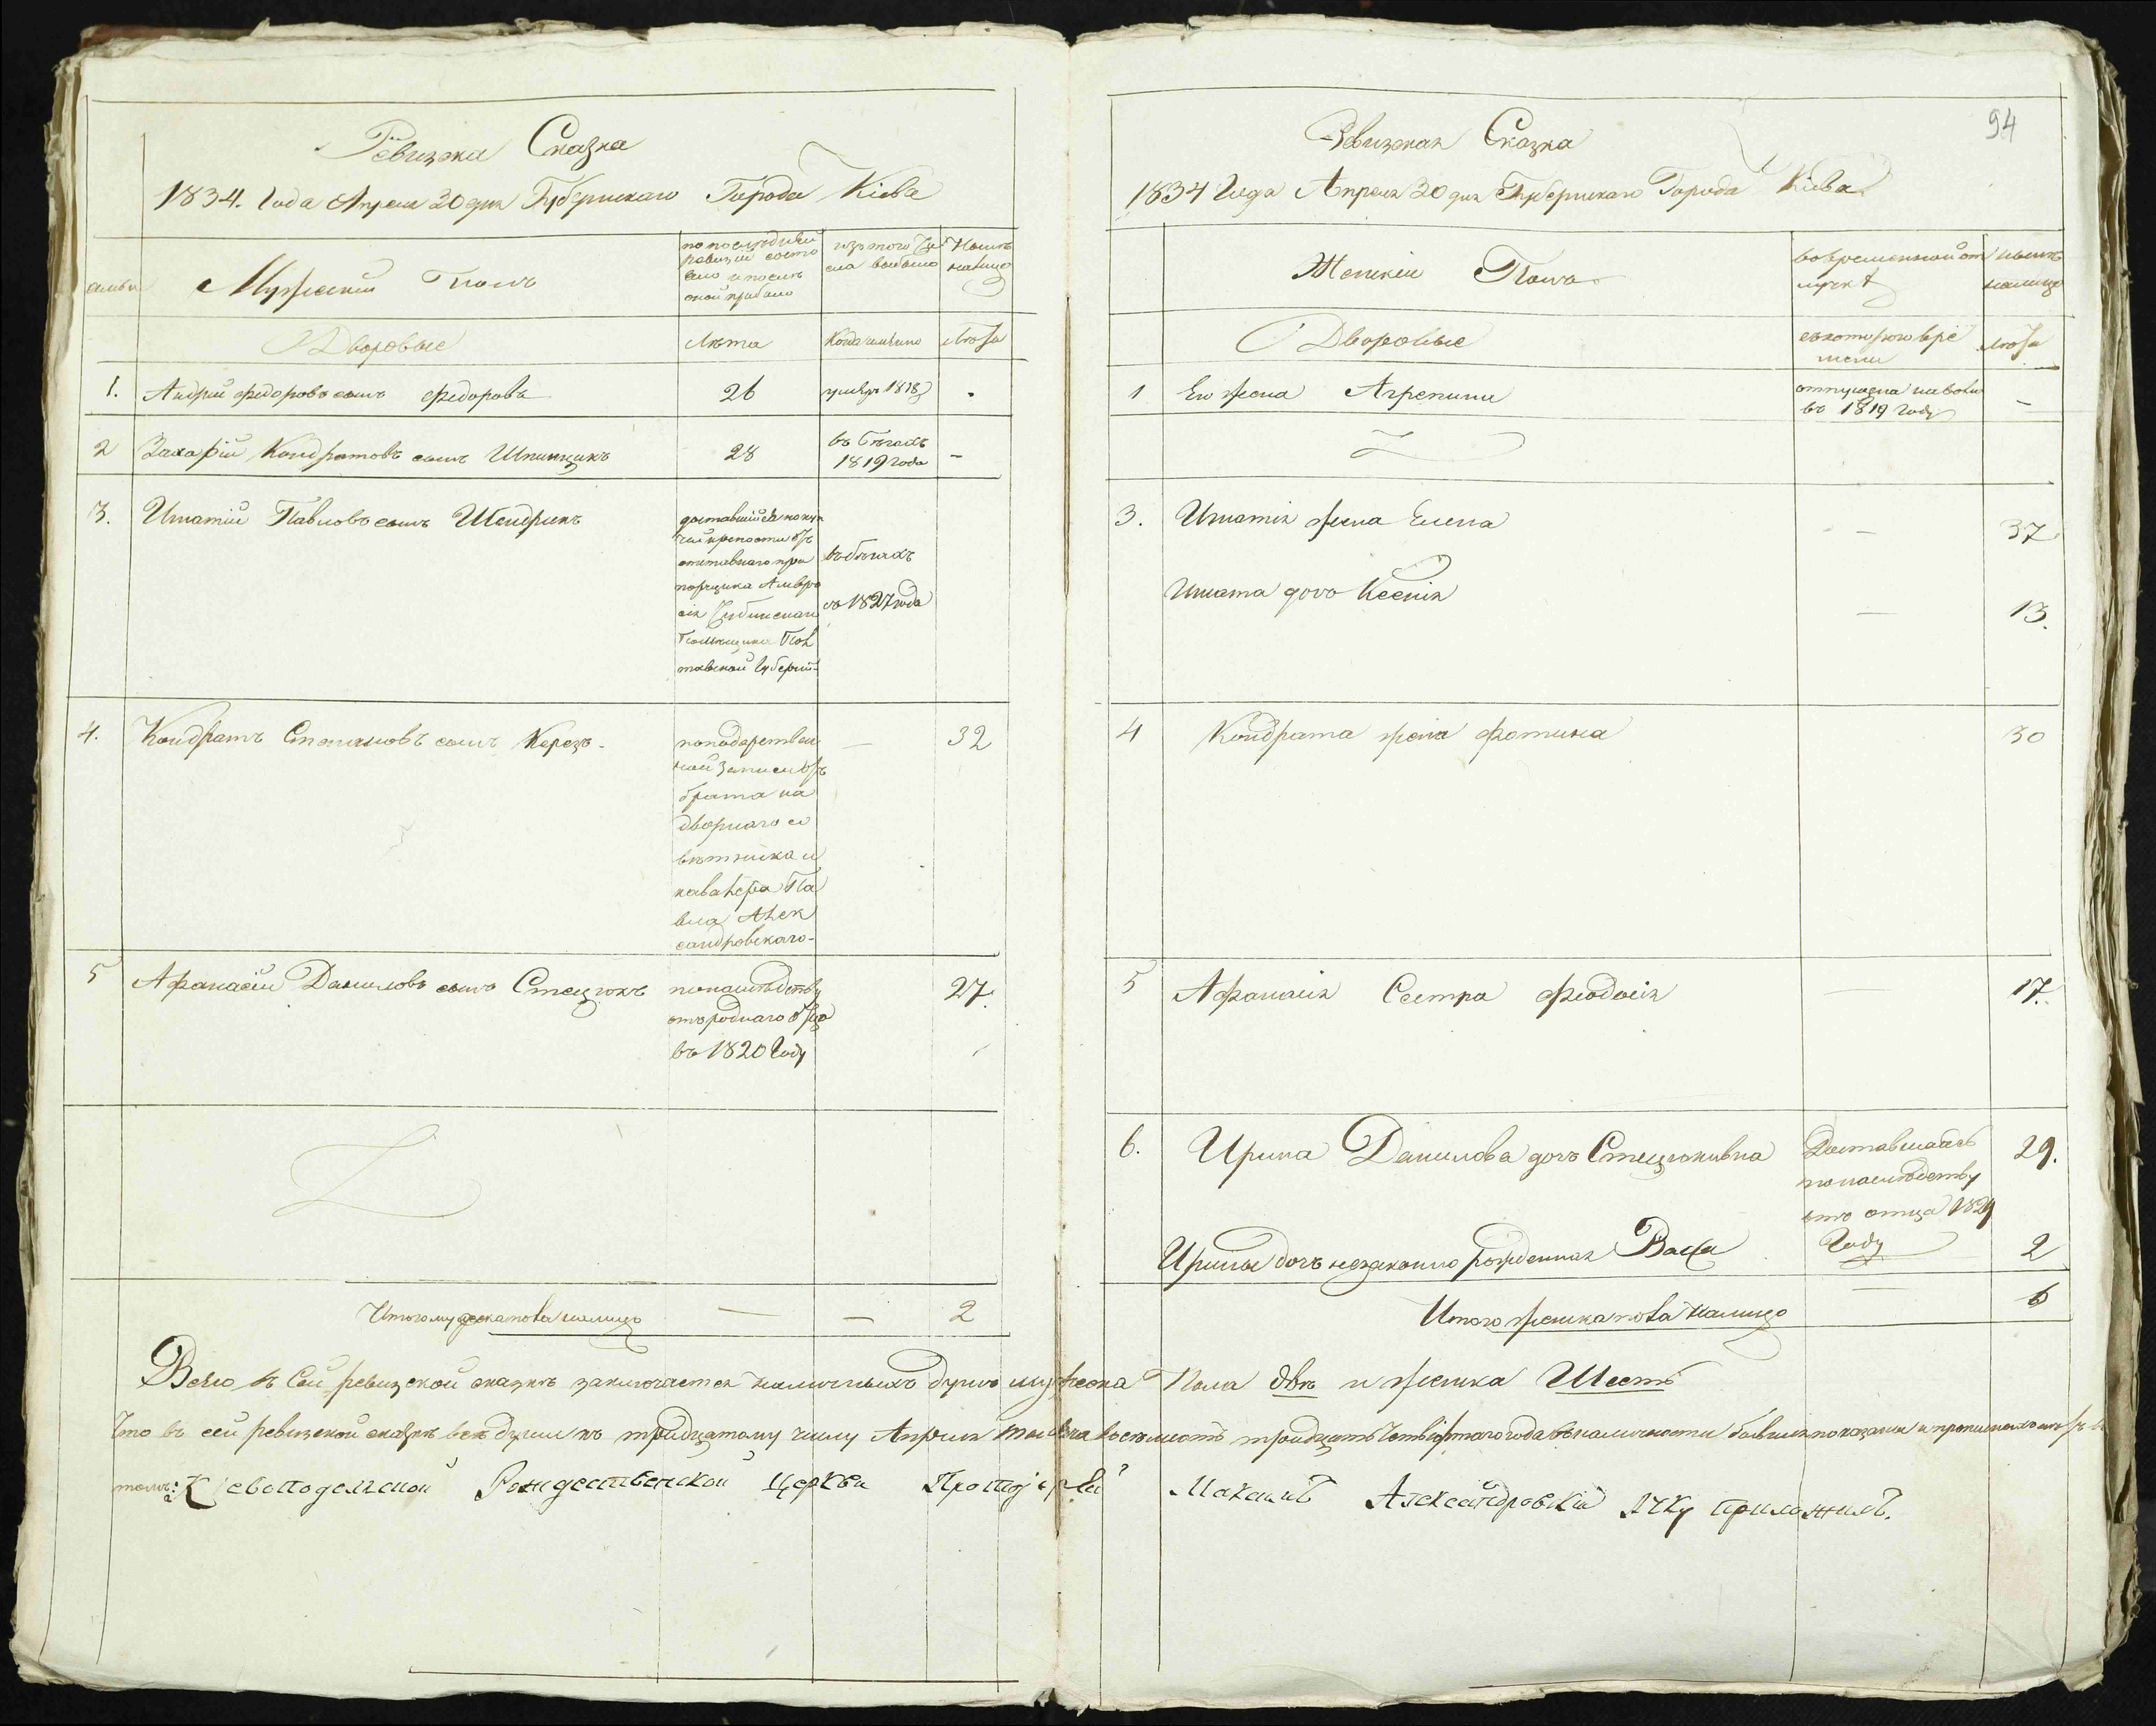 Ревизска Сказка
1834. Года Апреля 30 дня Губернскаго Города Кіева
семьи
Мужескій Полъ
по последней
ревизіи состо
яло и после
оной прибыло
изъ того Чи
сла выбыло
Ныне
налицо
Дворовые
Лѣта
Когда именно
Лѣта
1. Андрій Федоровъ сынъ Федоровъ 26 умеръ 1818 -
2 Захарій Кондратовъ сынъ Шпинцикъ 28
въ бегахъ
1819 года
-
3. Игнатій Павловъ сынъ Шендрикъ
доставшійся по куп
чей крепости отъ
отставнаго пра
порщика Амвро
сія
Помещика Пол
тавской Губерніи
въ бегахъ
съ 1827 года
4. Кондратъ Степановъ сынъ Керезъ - 32
по подарствен
ной записи отъ
брата на
дворнаго со
вѣтника и
кавалера Па
вла Алек
сандровскаго -
5 Афанасій Даниловъ сынъ Стецюкъ 27.
по наслѣдству
отъ роднаго отца
въ 1820 Году
Итого мужеска пола налицо — — 2
94
Ревизская Сказка
1834 Года Апреля 30 дня Губернскаго Города Кіева
Женскій Полъ
во временной от
лучкѣ
ныне
налицо
Дворовые
съ котораго вре
мени
Лѣта
1 Его жена Агрепина
отпущена на волю
въ 1819 Году
-
3. Игнатія жена Елена — 37
Игната дочь Ксенія — 13.
4 Кондрата жена Фотина 30
5 Афанасія Сестра Феодосія — 17.
6. Ирина Данилова дочь Стецюкивна 29.
Доставшаясь
по наслѣдству
отъ отца 1829
Году
Ирины дочь незаконно рожденная Васса 2
Итого женска пола налицо — 6
Всего въ Сей ревизской сказкѣ заключается наличныхъ душъ мужеска Пола двѣ и женска Шесть
Что въ сей ревизской сказкѣ всѣ души къ тридцатому числу Апреля тысяча восемьсотъ тридцать Четвертаго года въ наличности бывшія показаны и прописныхъ нетъ въ
томъ: Кіевоподольской Рождественской церкви Протоіерей Максимъ Александровскій руку приложилъ.